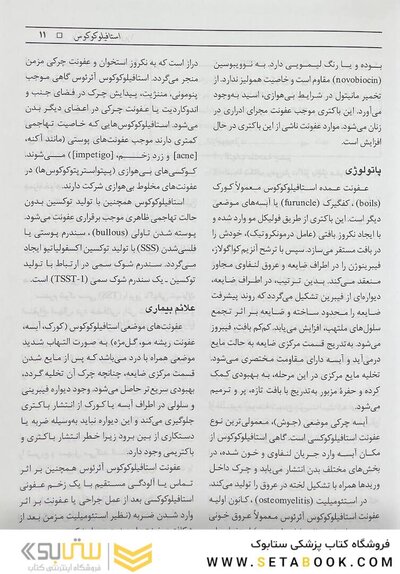 استافیلوکوکوس □ ۱۱
بوده و یا رنگ لیمویی دارد. به نووبیوسین
(novobiocin) مقاوم است و خاصیت همولیز ندارد. از
تخمیر مانیتول در شرایط بی‌هوازی، اسید به‌وجود
می‌آورد. این باکتری موجب عفونت مجرای ادراری در
زنان می‌شود. موارد عفونت ناشی از این باکتری در حال
افزایش است.
پاتولوژی
عفونت عمده استافیلوکوکوس معمولاً کورک
(boils)، کفگیرک (furuncle) یا آبسه‌های موضعی
دیگر است. این باکتری از طریق فولیکل مو وارد شده و
با ایجاد نکروز بافتی (عامل درمونکروتیک)، خودش را
در بافت مستقر می‌سازد. سپس با ترشح آنزیم کواگولاز،
فیبرینوژن را در اطراف ضایعه و عروق لنفاوی مجاور
منعقد می‌کند. بدین ترتیب، در اطراف ضایعه،
دیواره‌ای از فیبرین تشکیل می‌گردد که روند پیشرفت
ضایعه را محدود ساخته و ضایعه بر اثر تجمع
سلول‌های ملتهب، افزایش می‌یابد. کم‌کم بافت، فیبروز
می‌شود. به‌تدریج قسمت مرکزی ضایعه به حالت مایع
درمی‌آید و آبسه دارای مقاومت مختصری می‌شود.
تخلیه مایع مرکزی در این مرحله، به بهبودی کمک
کرده و حفرهٔ مزبور به‌تدریج با بافت تازه، پر و ترمیم
می‌شود.
آبسه چرکی موضعی (جوش)، معمولی‌ترین نوع
عفونت استافیلوکوکسی است. گاهی استافیلوکوکوس از
مکان آبسه وارد جریان لنفاوی و خون شده، در
بخش‌های مختلف بدن انتشار می‌یابد و چرک داخل
وریدها را همراه با تشکیل لخته در عروق را تولید می‌کند.
در استئومیلیت (osteomyelitis)، کانون اولیه
عفونت استافیلوکوکوس آئرئوس معمولاً عروق خونی
دراز است که به نکروز استخوان و عفونت چرکی مزمن
منجر می‌گردد. استافیلوکوکوس آئرئوس گاهی موجب
پنومونی، مننژیت، پیدایش چرک در فضای جنب و
اندوکاردیت یا عفونت چرکی در اعضای دیگر بدن
می‌شود. استافیلوکوکوس‌هایی که خاصیت تهاجمی
کمتری دارند موجب عفونت‌های پوستی (مانند آکنه،
[acne] و زرد زخم، [impetigo]) می‌شوند.
کوکسی‌های بی‌هوازی (پپتواسترپتوکوکوس‌ها) در
عفونت‌های مخلوط بی‌هوازی شرکت دارند.
استافیلوکوکوس همچنین با تولید توکسین بدون
حالت تهاجمی ظاهری موجب برقراری عفونت می‌شود.
پوسته شدن تاولی (bullous)، سندرم پوستی یا
فلسی‌شدن (SSS) با تولید توکسین اکسفولیاتیو ایجاد
می‌گردد. سندرم شوک سمی در ارتباط با تولید
توکسین ـ یک سندرم شوک سمی (TSST-1) است.
علائم بیماری
عفونت‌های موضعی استافیلوکوکوس (کورک، آبسه،
عفونت ریشه مو، گل‌مژه) به صورت التهاب شدید
موضعی همراه با درد می‌باشد که پس از مایع شدن
قسمت مرکزی ضایعه، چنانچه چرک آن تخلیه گردد،
بهبودی سریع‌تر حاصل می‌شود. وجود دیواره فیبرینی
و سلولی در اطراف آبسه یا کورک از انتشار باکتری
جلوگیری می‌کند و این دیواره نباید به‌وسیله ضربه یا
دستکاری از بین برود زیرا خطر انتشار باکتری و
باکتریمی وجود دارد.
عفونت استافیلوکوکوس آئرئوس همچنین بر اثر
تماس یا آلودگی مستقیم با یک زخم عفونی
استافیلوکوکسی بعد از عمل جراحی یا عفونت بر اثر
وارد شدن ضربه (نظیر استئومیلیت مزمن بعد از
فروشگاه کتاب پزشکی ستابوک
WWW.SETABOOK.COM
ستابوک
فروشگاه اینترنتی کتاب